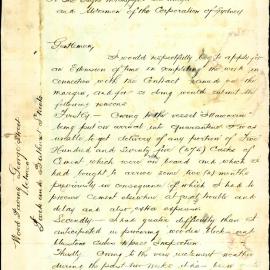 and Aldermen of the Corporation of Sydney
Gentlemen,
I would respectfully beg to apply for
an Extension of time in completing the work in
connection with the Contract named on the
margin, and for so doing would submit the
following reasons
Firstly - Owing to the vessel
being put on arrival into Quarantine I was
unable to get delivery of any portion of Two
Hundred and Seventy five (275) Casks of
Cement which were on board and which I
had bought to arrive some two (2) months
previously in consequence of which I had to
procure cement elsewhere at great trouble and
delay and also extra expense
Secondly - I had greater difficulty than I
anticipated in procuring wooden blocks and
bluestone cubes to pass Inspection
Thirdly Owing to the very inclement weather
during the past two weeks it has been
Wood Paving George Street
between
Park and Bathurst Streets